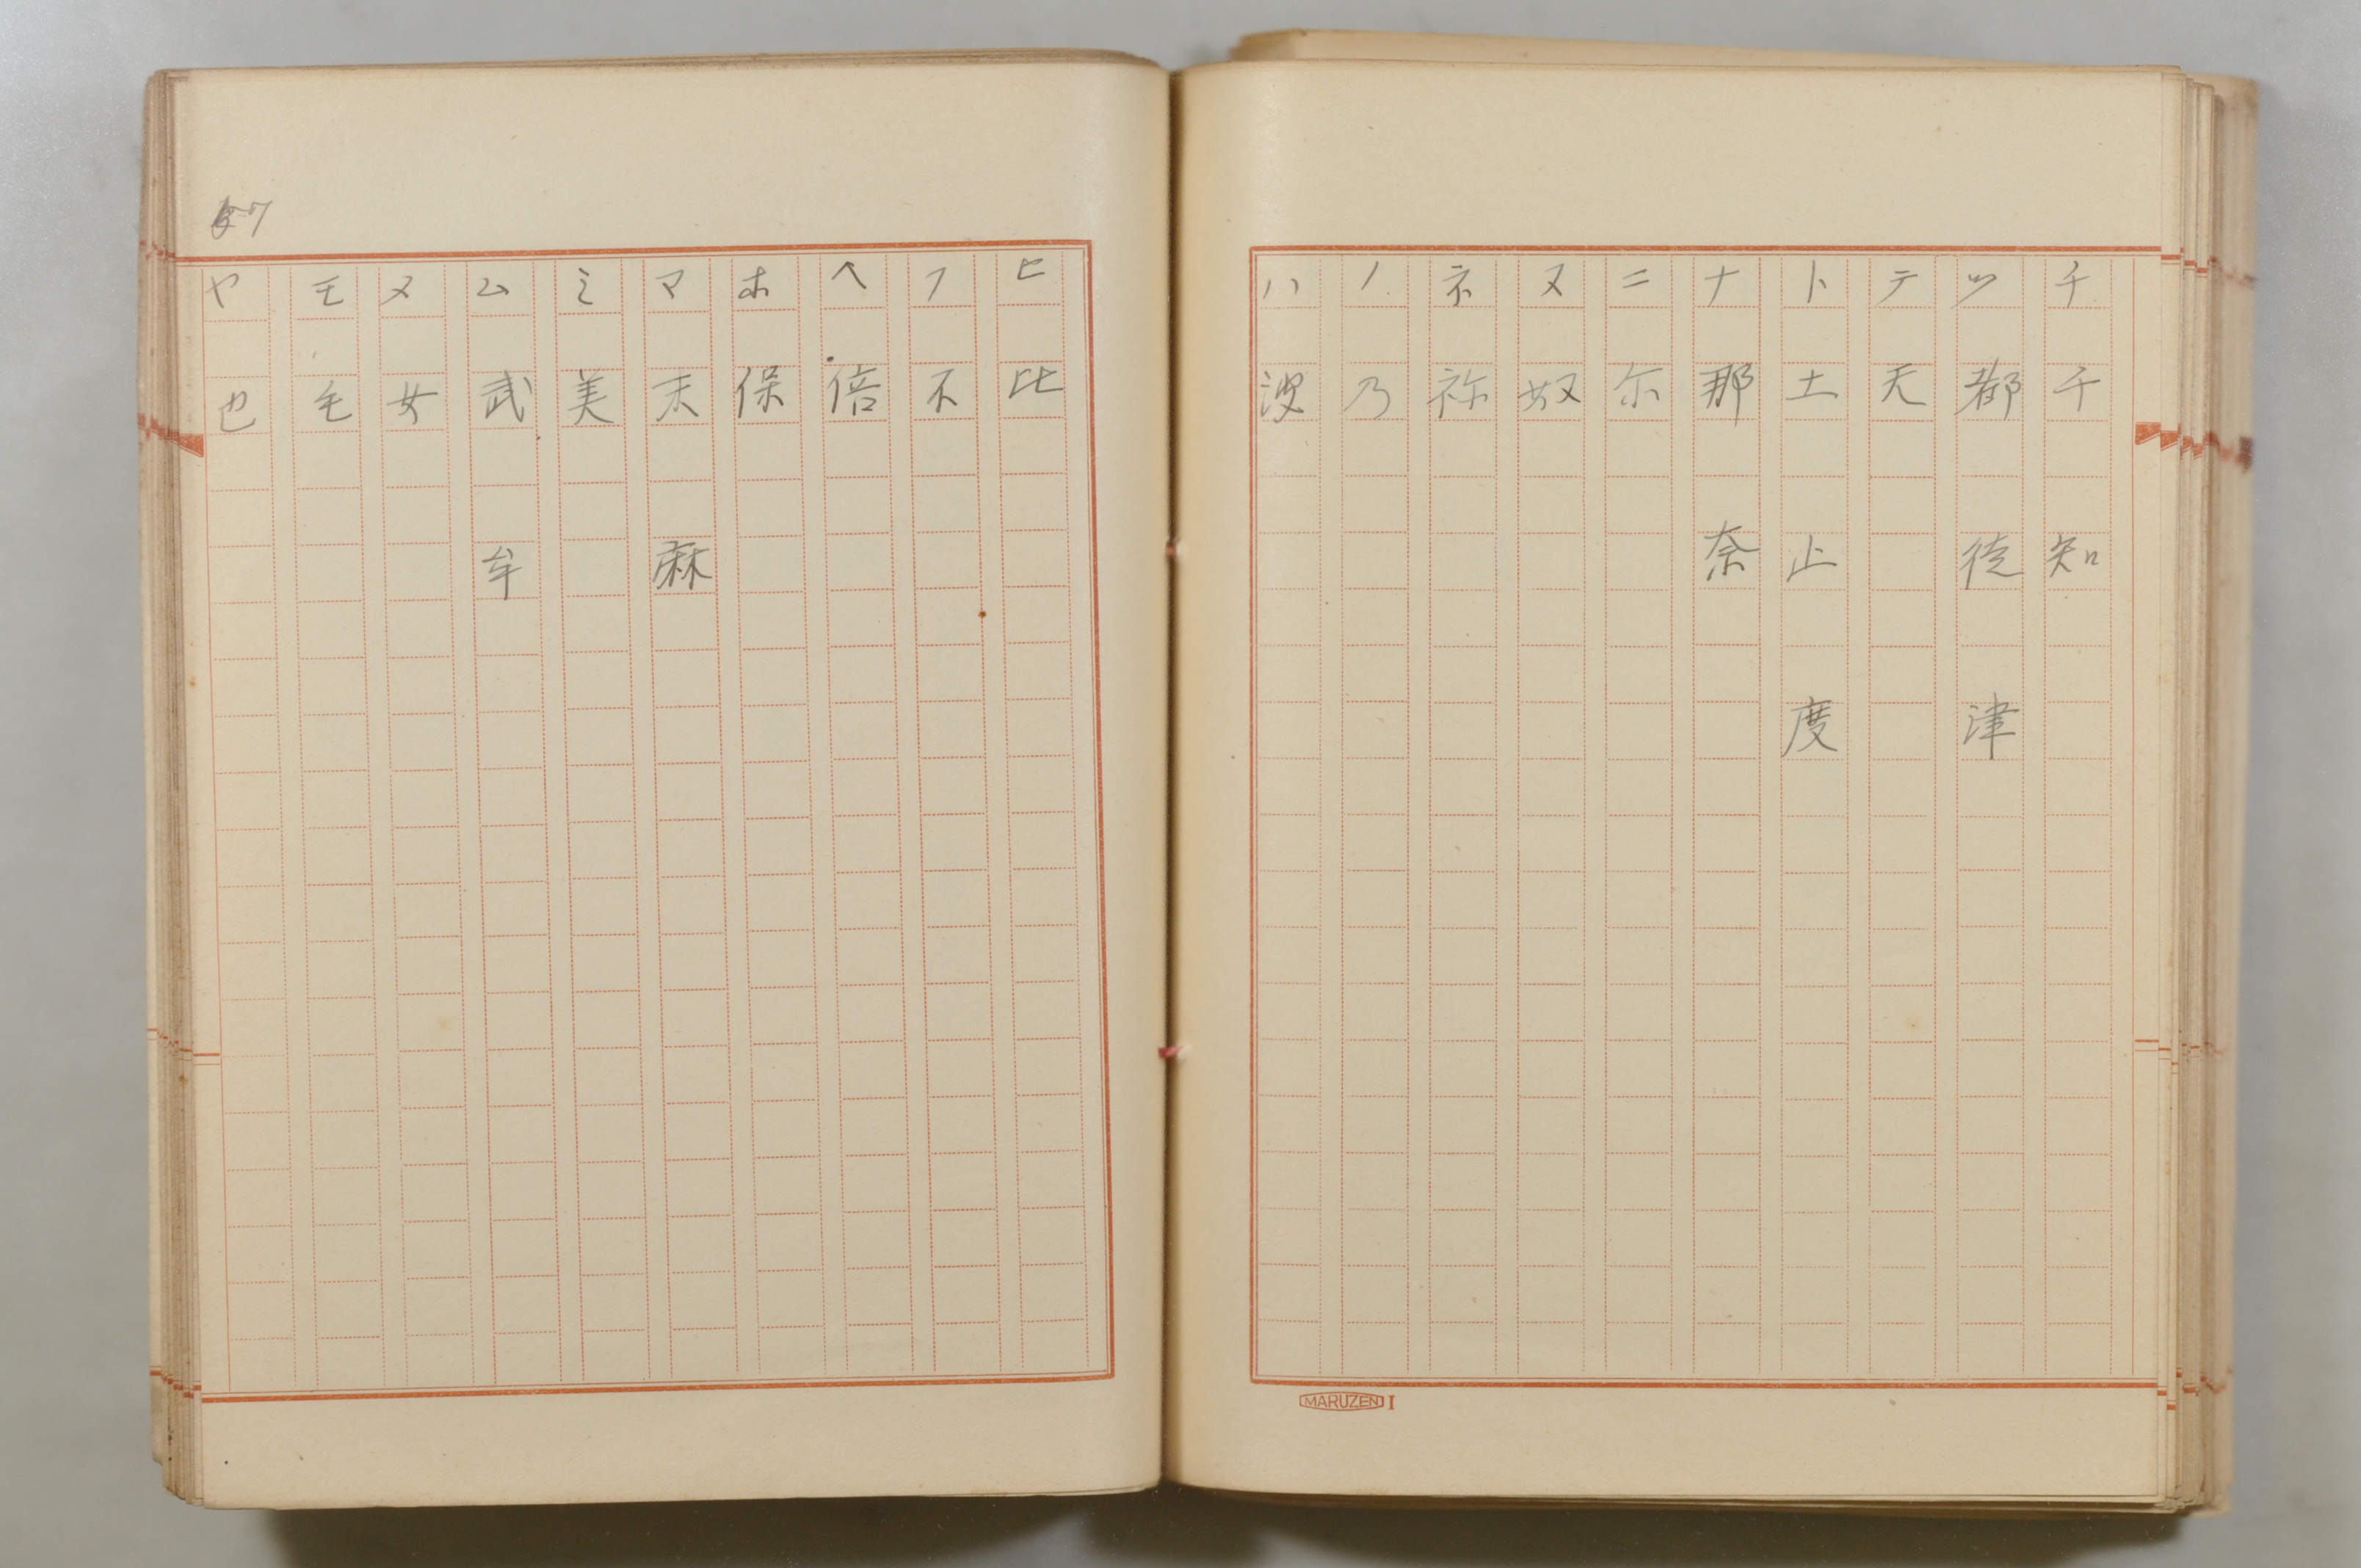 チ 千 知
ツ 都 徒 津
テ 天
ト 土 止 度
ナ 那 奈
ニ 尓
ヌ 奴
ネ 祢
ノ 乃
ハ 波
MARUZEN I
ヒ 比
フ 不
ヘ 倍
ホ 保
マ 末 麻
ミ 美
ム 武 牟
メ 女
モ 毛
ヤ 也